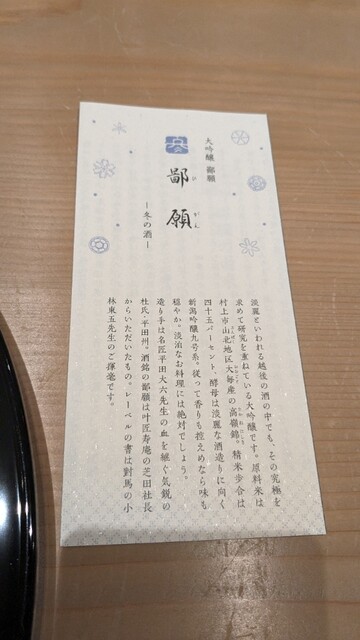 大吟醸 鄙願
鄙願
ひ がん
―冬の酒―
淡麗といわれる越後の酒の中でも、その究極を
求めて研究を重ねている大吟醸です。原料米は
村上市山北地区大毎産の高嶺錦。精米歩合は
四十五パーセント、酵母は淡麗な酒造りに向く
新潟吟醸九号系。従って香りも控えめなら味も
穏やか。淡泊なお料理には絶対でしょう。
造り手は名匠平田大六先生の血を継ぐ気鋭の
杜氏・平田州。酒銘の鄙願は叶匠寿庵の芝田社長
からいただいたもの。レーベルの書は對馬の小
林東五先生のご揮毫です。